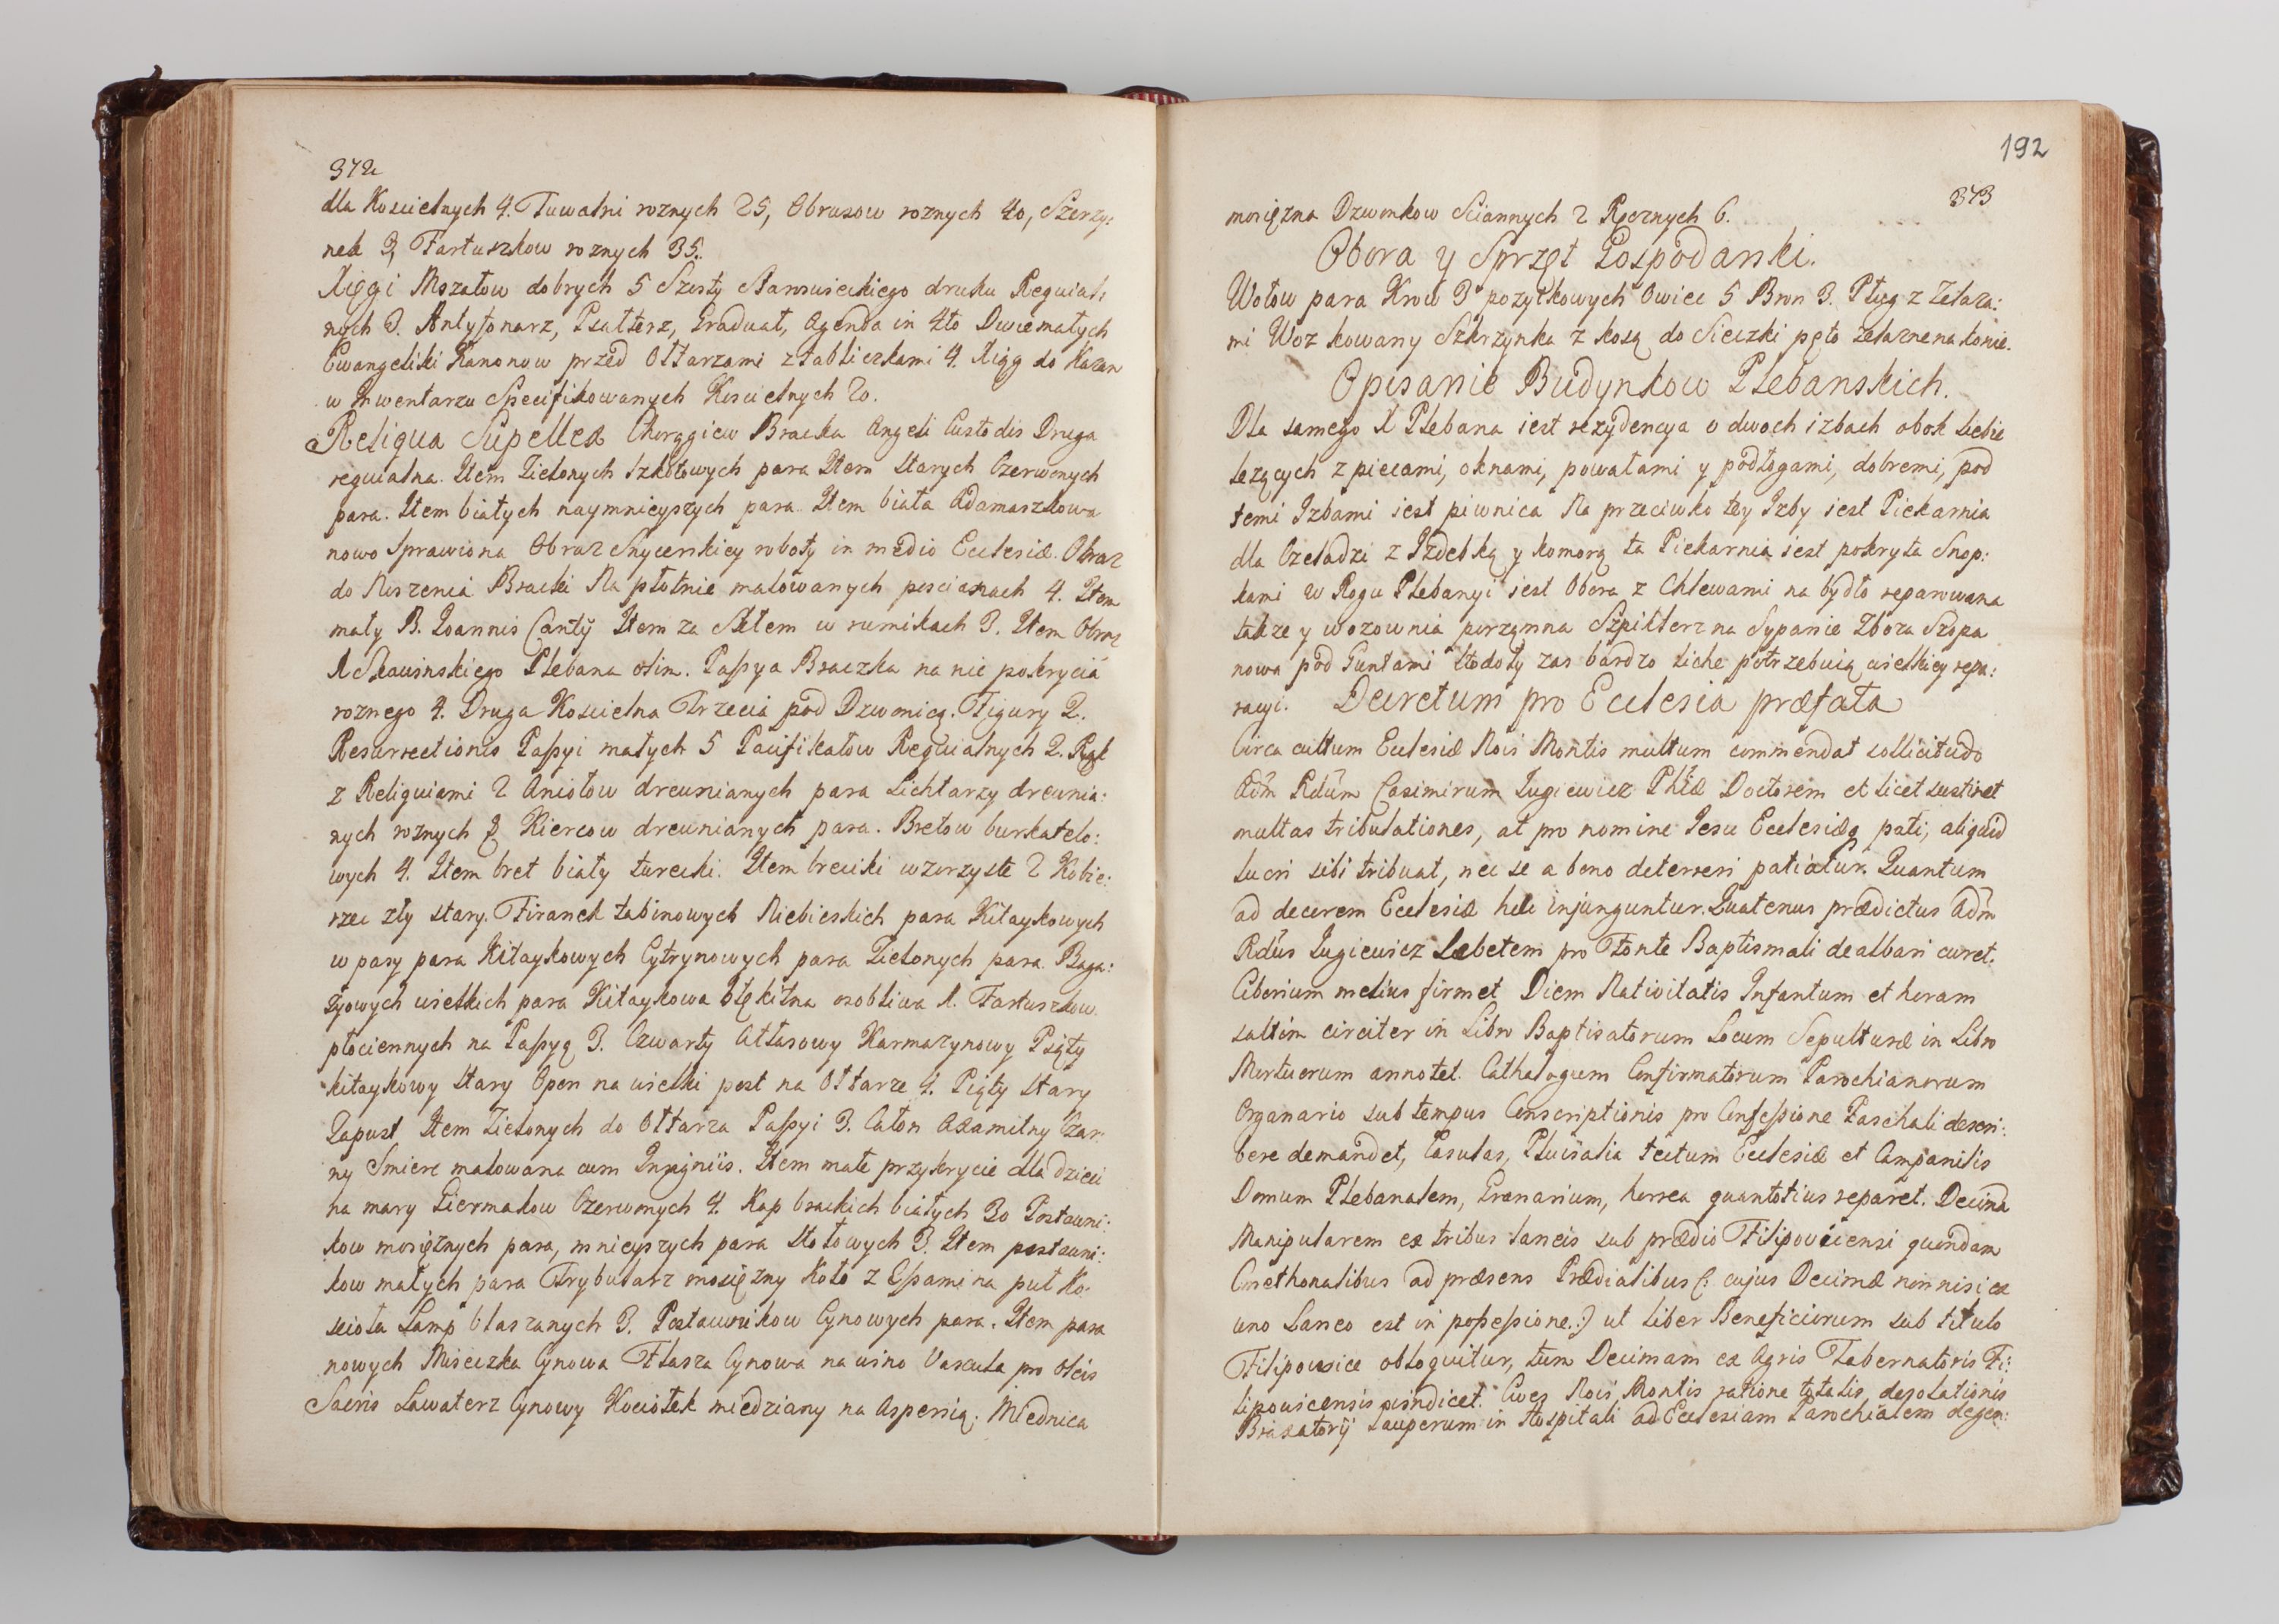 372
dla Koscielnych 4. Tuwalni roznych 25, Obrusow roznych 40, Szerzy:
nek 3, Fartuszkow roznych 35.
Xięgi Mszałow dobrych 5 Szosty druku Requial:
nych 3. Antyfonarz, Psałterz, Graduał, Agenda in 4to Dwie małych
Ewangeliki Kanonow przed Ołtarzami z tabliczkami 4. Xiąg do Kazan
w Inwentarzu Specifikowanych Koscielnych 20.
Reliqua Supellex Chorągiew Bracka Angeli Custodis Druga
requialna. Item Zielonych Szkołowych para Item starych Czerwonych
para. Item białych naymnieyszych para Item biała Adamaszkowa
nowo sprawiona Obraz Snycerskiey roboty in medio Ecclesiæ. Obraz
do Noszenia Bracki Na płotnie malowanych po scianach 4. Item
mały B. Joannis Cantÿ Item za Szkłem w rumikach 3. Item Obraz
X Skawinskiego Plebana olim. Passya Braczka na nie pokrycia
roznego 4. Druga Koscielna Trzecia pod Dzwonicą. Figury 2.
Resurrectionis Passyi małych 5 Pacifikałow Requialnych 2. Rąk
z Reliquiami 2 Aniołow drewnianych para Lichtarzy drewnia:
nych roznych 8 Kiercow drewnianych para. Bretow burkatelo:
wych 4. Item bret biały turecki. Item breciki wzorzyste 2 Kobie:
rzec zły stary. Firanek tabinowych Niebieskich para Kitaykowych
w pasy para Kitaykowych Cytrynowych para Zielonych para. Baga:
zyowych wielkich para Kitaykowa błękitna osobliwa 1. Fartuszkow
płociennych na Passyą 3. Czwarty Atłasowy Karmazynowy Piąty
kitaykowy stary Opon na wielki post na Ołtarze 4. Piąty stary
Zapust Item Zielonych do Ołtarza Passyi 3. Całon Axamitny Czar:
ny Smierc malowana cum Insigniis. Item małe przykrycie dla dzieci
na mary Ziermakow Czerwonych 4. Kap brackich białych 30 Postawni:
kow mosiężnych para, mnieyszych para stołowych 3. Item postawni:
kow małych para Trybularz mosiężny Koło z Essami na puł Ko:
scioła Lamp blaszanych 3. Postawnikow Cynowych para. Item para
nowych Miseczka Cynowa Flasza Cynowa na wino Vascula pro Oleis
Sacris Lawaterz Cynowy Kociołek miedziany na Aspersią. Miednica
192
373
mosięzna Dzwonkow Sciannych 2 Ręcznych 6.
Obora y Sprzęt Gospodarski.
Wołow para Krow 3 pozytkowych Owiec 5 Bron 3. Pług z Zelaza:
mi Woz kowany Szkrzynka z kosą do Sieczki pęto zelazne na konie.
Opisanie Budynkow Plebanskich.
Dla samego X Plebana iest rezydencya o dwoch izbach obok siebie
lezących z piecami, oknami, powałami y podłogami, dobremi, pod
temi Izbami iest piwnica Na przeciwko tey Izby iest Piekarnia
dla Czeladzi z Izdebką y komorą ta Piekarnia iest pokryta Snop:
kami w Rogu Plebanyi iest Obora z Chlewami na bydło reparowana
takze y wozownia porzęmna Szpikterz na Sypanie Zboza Szopa
nowa pod Guntami Stodoły zas bardzo liche potrzebuią wielkiey repa:
racyi. Decretum pro Ecclesia præfata
Circa cultum Ecclesiæ Novi Montis multum commendat sollicitudo
Adm Rdum Casimirum Jugiewicz Phiæ Doctorem et licet sustinet
multas tribulationes, at pro nomine Jesu Ecclesiæq pati, aliquid
lucri sibi tribuat, nec se a bono deterreri patiatur. Quantum
ad decorem Ecclesiæ hæc injunguntur. Quatenus prædictus Adm
Rdus Jugiewicz Lebetem pro Fonte Baptismali dealbari curet.
Ciborium melius firmet Diem Nativitatis Infantum et horam
saltim circiter in Libro Baptisatorum Locum Sepulturæ in Libro
Mortuorum annotet. Cathalogum Confirmatorum Parochianorum
Organario sub tempus Conscriptionis pro Confessione Paschali descri:
bere demandet, Casulas, Pluvialia tectum Ecclesiæ et Campanilis
Domum Plebanalem, Granarium, horrea quantotius reparet. Decimã
Manipularem ex tribus laneis sub prædio Filipoviciensi quondam
Cmethonalibus ad præsens Prædialibus (: cujus Decimæ non nisi ex
uno Laneo est in possessione.:) ut liber Beneficiorum sub titulo
Filipowice obloquitur, tum Decimam ex Agris Tabernatoris Fi:
lipoviciensis vindicet. Cives Novi Montis ratione totalis desolationis
Braxatorÿ Pauperum in Hospitali ad Ecclesiam Parochialem degen: